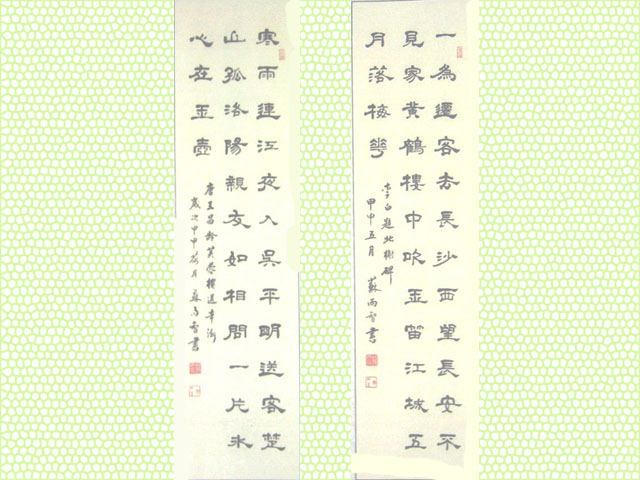 一為遷客去長沙西望長安不
見家黃鶴樓中吹玉笛江城五
月落梅花
李白題北榭碑
甲申五月 蘇雨書
寒雨連江夜入吳平明送客楚
山孤洛陽親友如相問一片氷
心在玉壺
唐王昌齡芙蓉樓送辛漸
歲次甲申月 蘇雨書